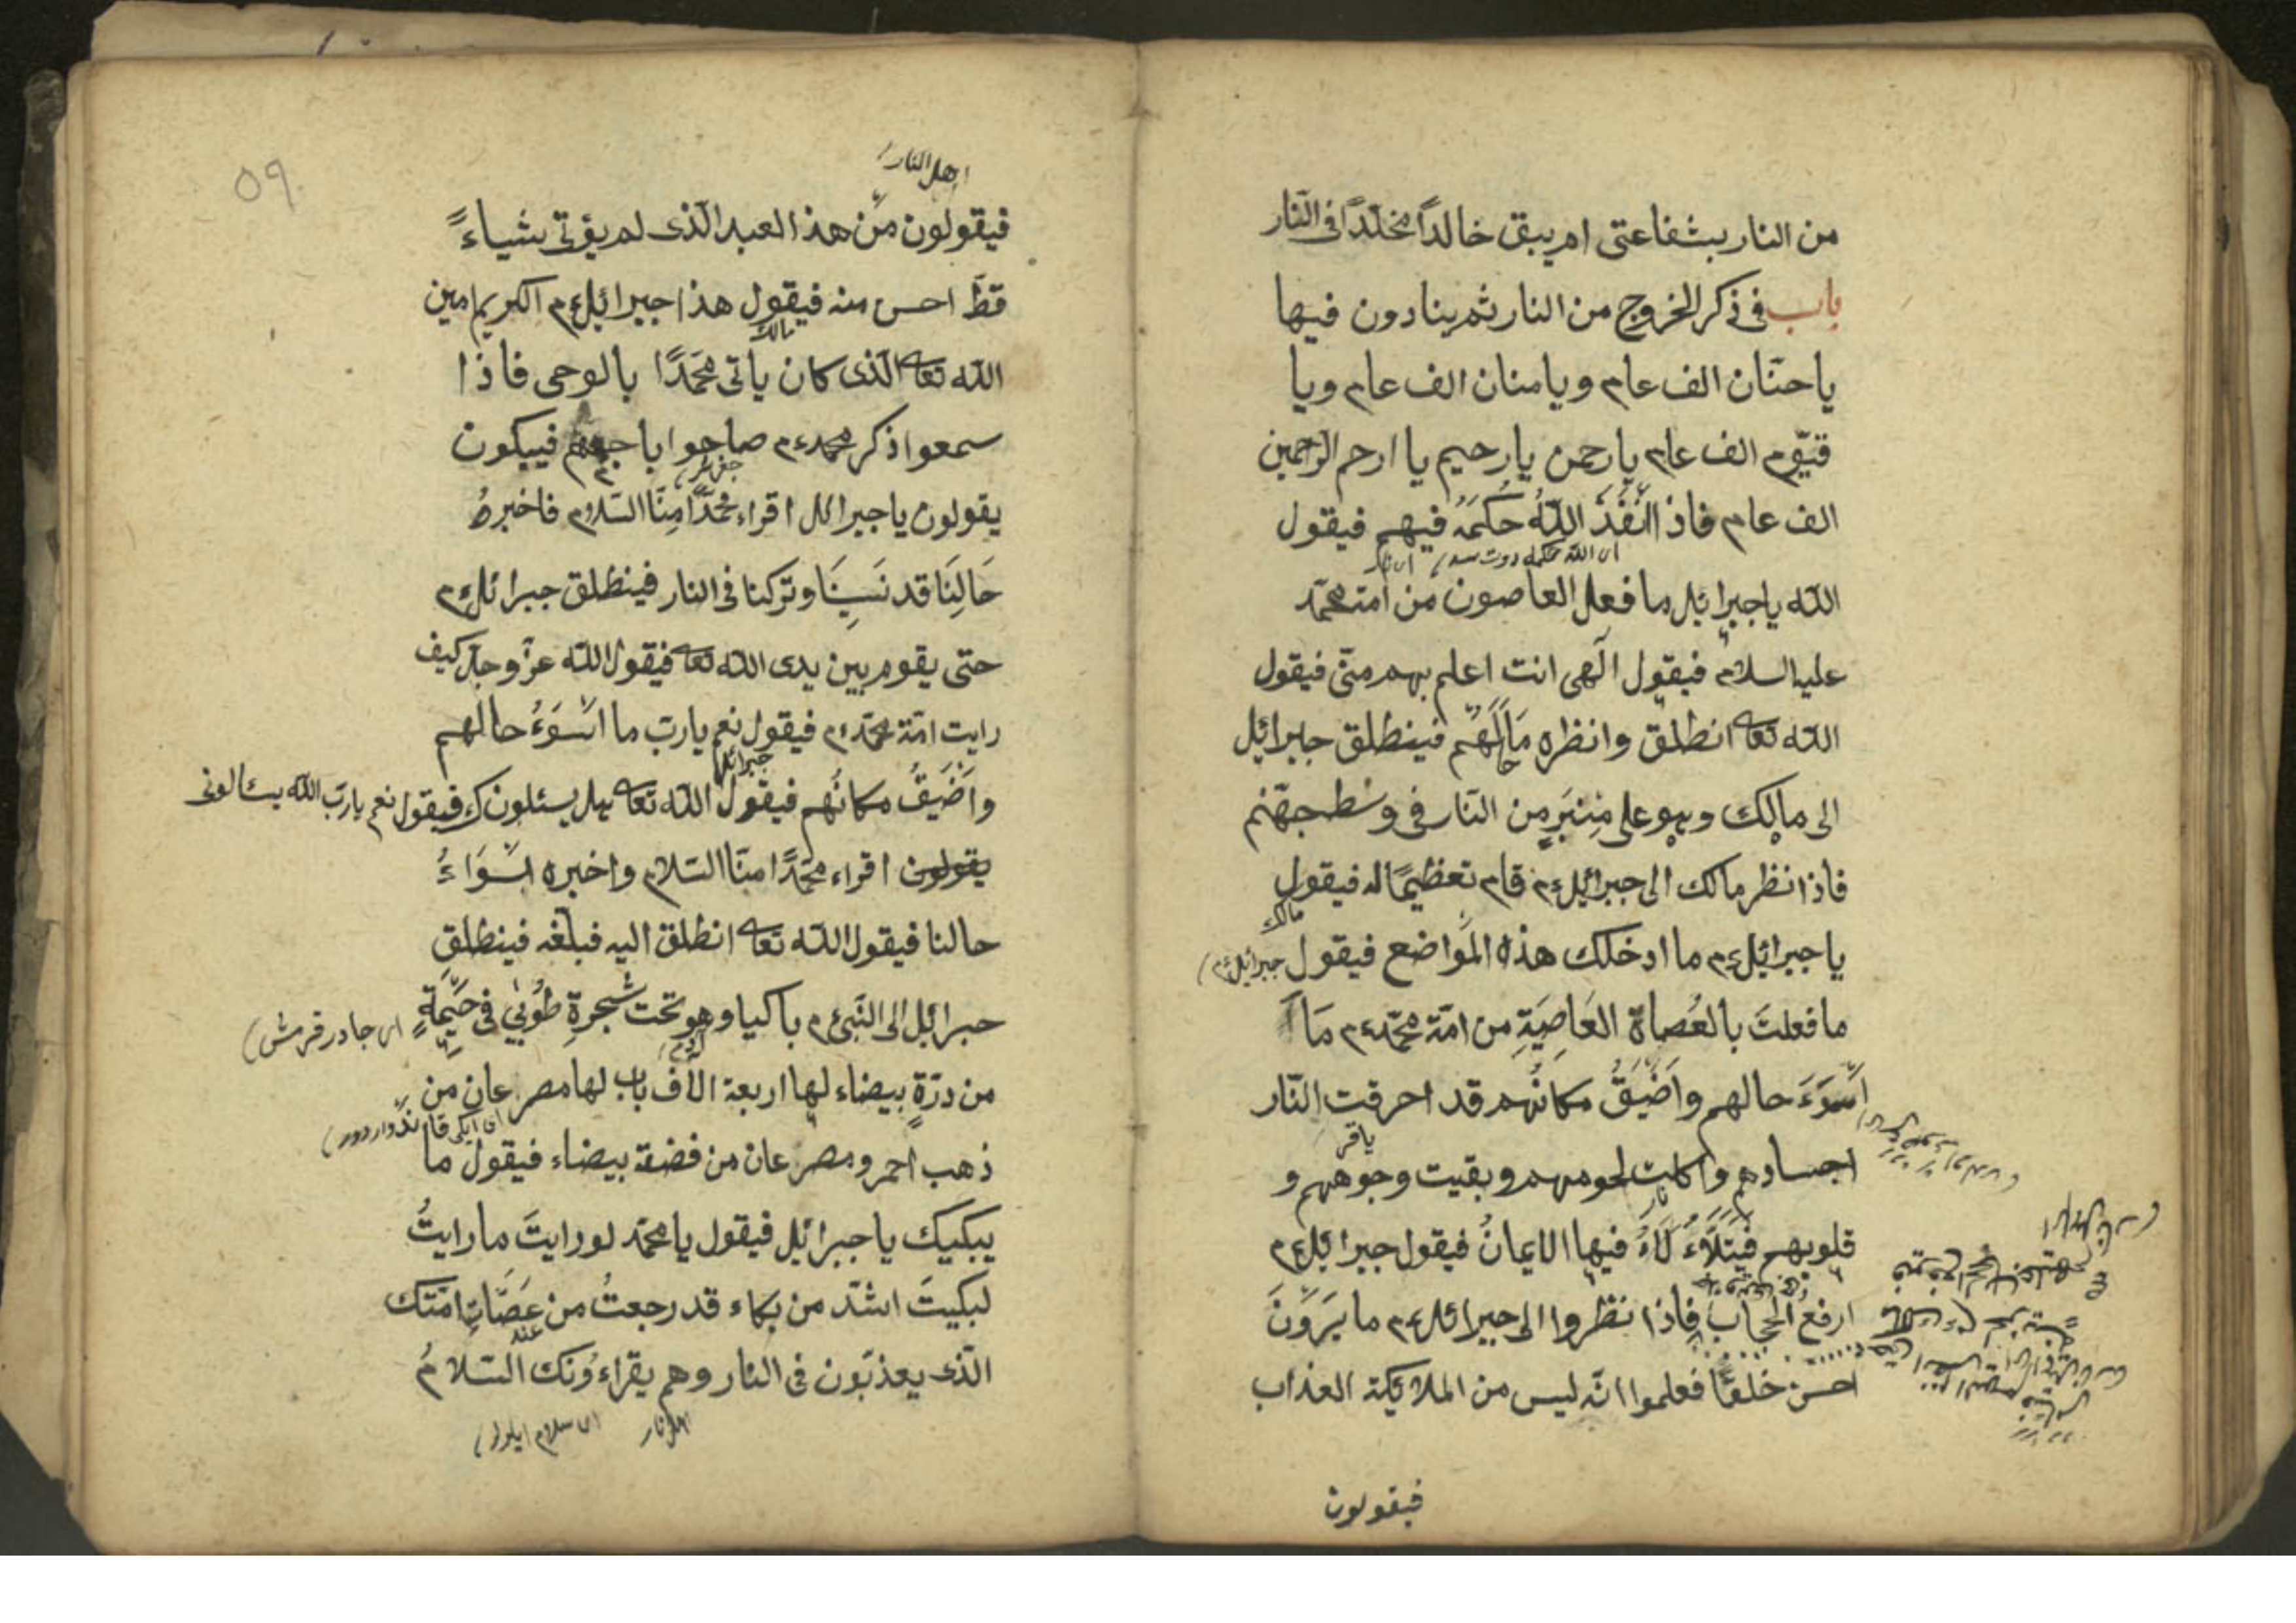 من النار بشفاعتى ام يبقى خالداً مخلّداً فى النّار
باب فى ذكر الخروج من النار ثم ينادون فيها
يا حنّان الف عام ويا منان الف عام ويا
قيّوم الف عام يا رحمن يا رحيم يا ارحم الرّاحمين
الف عام فاذا انْفَذَ اللّهُ حُكمَهُ فيهم فيقول
الله يا جبرائيل ما فعل العاصون من امّة محمّد
عليه السلام فيقول الٓهى انت اعلم بهم منّى فيقول
اللّه تعا انطلق وانظر مَا لَهُم فينطلق جبرائيل
الى مالك وهو على مِنبَرٍ من النّار فى وسْط جهنّم
فاذا نظر مالك الى جبرائيل ءم قام تعظيمًا له فيقول
مالك
يا جبرائيل ءم ما ادخلك هذه المواضع فيقول جبرائيل ءم
ما فعلتَ بالعُصاة العَاصِيَةِ من امّة محمّد ءم مَا
اَسْوَءَ حالهم واَضْيَقُ مكانُهم قد احرقت النّار
اجسادهم واكلت لحومهم وبقيت وجوههم و
قلوبهم فَيَتَلَأْلَاءُ فيها الايمانُ فيقول جبرائيل ءم
ارفع الحجاب فاذا نظروا الى جبرائل ءم ما يَرَوْنَ
احسن خلقًا فعلموا انّه ليس من الملائكة العذاب
فيقولون
٥٩
اهل النار
فيقولون مَن هذا العبد الّذى لم يؤتى شياءً
قطّ احسن منه فيقول هذا جبرائيل ءم الكريم امين
مالك
اللّه تعا الّذى كان ياتى محمّدًا بالوحى فاذا
سمعوا ذكر محمد ءم صاحوا باجمعهم فيبكون
يقولون يا جبرائل اقراء محمّدًا مِنّا السّلام فاخبرهُ
حَالِنَا قد نَسِيَنَا وتركنا فى النار فينطلق جبرائل ءم
حتى يقوم بين يدى اللّه تعا فيقول اللّه عزّ وجلّ كيف
رايت امّة محمّد ءم فيقول نعم يا ربّ ما اسْوَءُ حالهم
جبرائل
واَضْيَقُ مكانُهم فيقول اللّه تعا هل يسئلونك فيقول نعم يا ربّ اللّه يسئالونى
يقولون اقراء محمّدًا منّا السّلام واخبره اسْوَاءُ
حالنا فيقول اللّه تعا انطلق اليه فبلّغه فينطلق
جبرائيل الى النّبى ءم باكيا وهو تحت شجرةِ طُوبٰي فى خَيْمَةٍ اى جادر قرمش
من درّةٍ بيضاء لها اربعة الاف باب لها مصرعان من
ذهب احمر ومصرعان من فضة بيضاء فيقول ما
يبكيك يا جبرائيل فيقول يا محمّد لو رايتَ ما رايتُ
لبكيتَ اشدّ من بكاء قد رجعتُ من عصَاتِ امّتك
الّذى يعذبّون فى النار وهم يقراءُونك السّلامُ
اهل نار